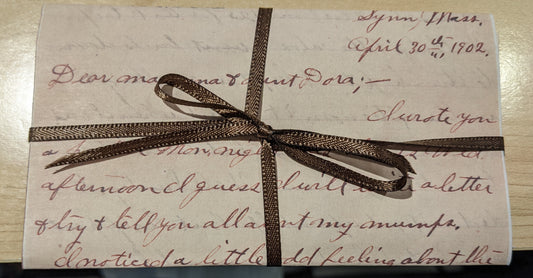 Lynn, Mass.
April 30 th, 1902.
Dear mamma & aunt Dora;—
I wrote you
a Mon. night
afternoon I guess I will a letter
& try & tell you all about my mumps.
I noticed a little odd feeling about the